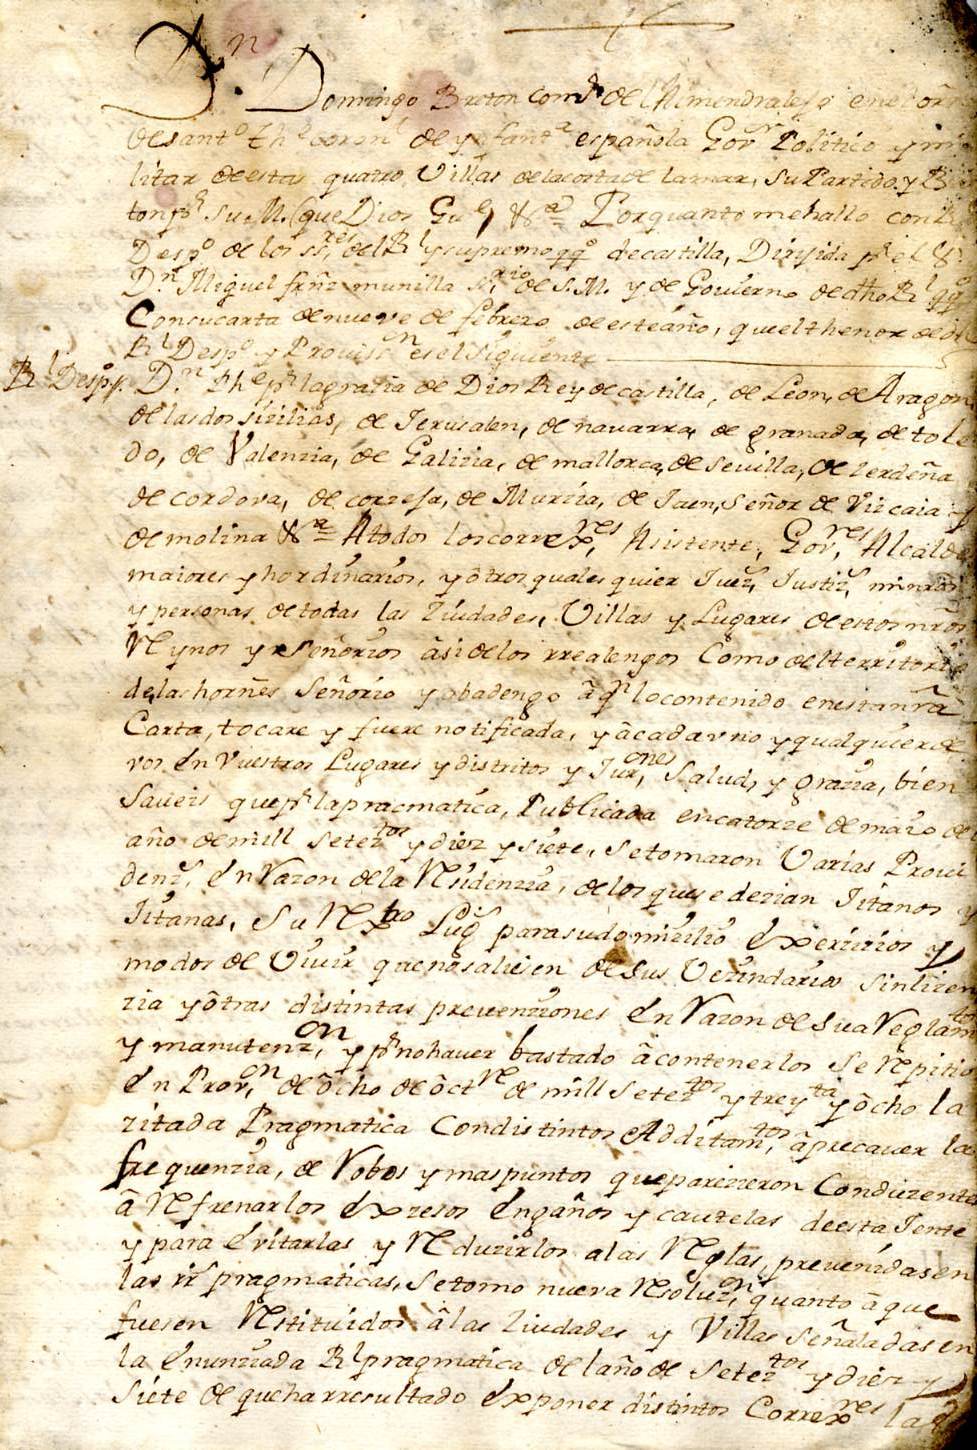 Dn
Domingo Breton comdr del Almendralejo en el orn
de santo thē coronl de ynfanta española Govr Politico y mi
litar de estas quatro Villas de la costa de la mar, Su Partido y B
tonpr Su M. (que Dios Gue) &a Por quanto me hallo con Rl
Despo de los ssres, del Rl y supremo qqo de castilla, Dirijida pr el Sr
Dn Miguel frñz munilla srio de S.M. y de Govierno de dho Rl qqo
Con su carta de nueve de febrero de este año, que el thenor de
Rl Despo y Provisn es el Siguiente
Rl Despo Dn Phe pr la grazia de Dios Rey de castilla, de Leon, de Aragon
de las dos sizilias, de Jerusalen, de navarra, de granada, de tole
do, de Valenzia, de Galizia, de mallorca, de Sevilla, de Zerdeña
de cordova, de corzega, de Murzia, de Jaen, Señor de Vizcaia y
de molina &a A todos los correxres, Asistente, Govres, Alcald
maiores y hordinarios, y ôtros quales quier Juezs, Justizs, minros
y personas de todas las Ziudades, Villas y Lugares de estos nros
Reynos y Señorios âsi de los rrealengos Como del territorio
de las hornēs Señorio y abadengo â qn lo contenido en esta nrā
Carta, tocare y fuere notificada, y â cada vno y qualquiera de
vos ên Vuestros Lugares y distritos y Jurones, Salud, y grazia, bien
Saveis que pr la pracmatica, Publicada en catorze de maio de
año de mill Seteztos y diez y siete, se tomaron Varias Provi
denzs, ên Razon de la Residenzia, de los que se dezian Jitanos y
Jitanas, Su Rexto Lugs para su domizilio êxerzizios y
modos de Vivir que no saliesen de Sus Vezindarios sin lizen
zia y ôtras distintas prevenziones ên Razon de Sua Reglamto
y manutenzon, y pr no haver bastado â contenerlos Se Repitio
ên Provon, de ôcho de ôctre de mill Seteztos y treyta y ôcho la
zitada Pragmatica Con distintos Additamtos, â precaver la
frequenzia, de Robos y mas puntos que parezieron Conduzente
â Refrenar los êxzesos êngaños y cautelas de esta Jente
y para êvitarlas y Reduzirlos a las Reglas, prevenidas en
las rrs pragmaticas, se tomo nueva Resoluzon, quanto â que
fuesen Restituidos â las Ziudades y Villas Señaladas en
la ênunziada Rl pragmatica del año de Seteztos y diez y
Siete de que ha rresultado êxponer distintos Correxres la